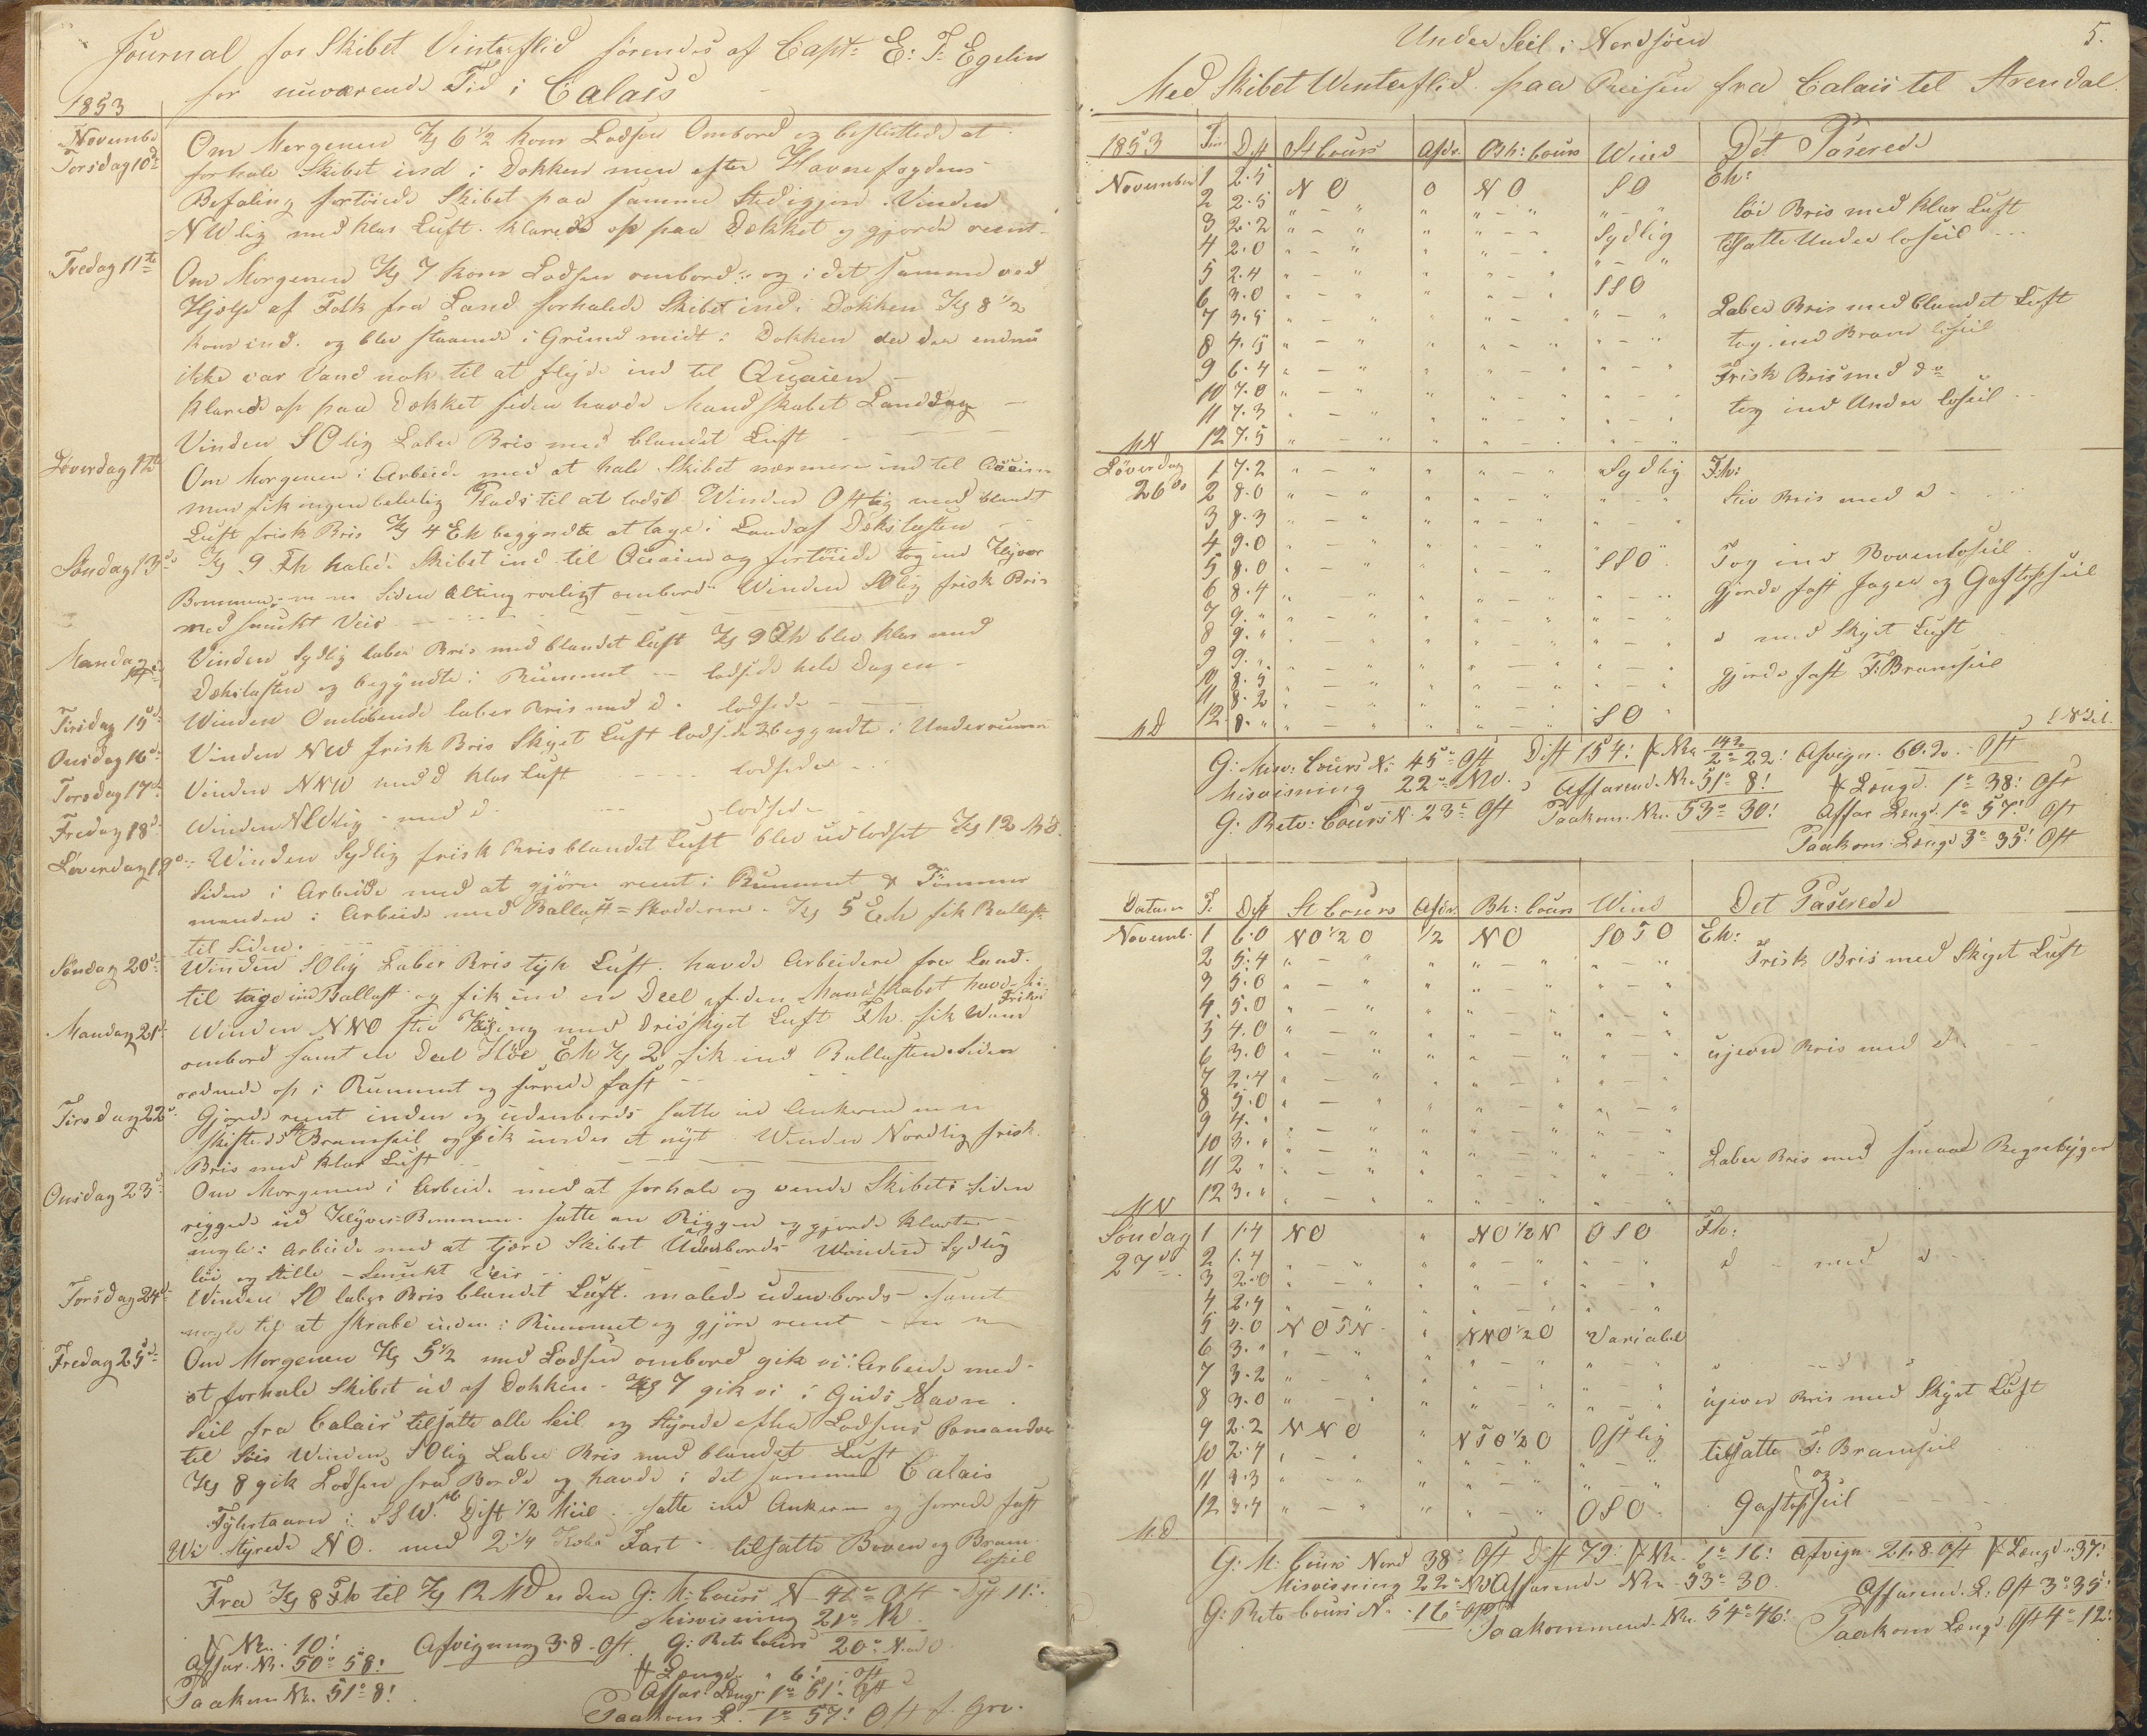 Journal for Skibet Vinterflid førendes af Capt: E: T: Egelin
for nuværende Tid i Calais
1853
November Torsdag 10de Om Morgenen Kl 6 1/2 kom Lodsen Ombord og besluttede at
forhale Skibet ind i Dokken men efter Havnefogdens
Befaling fortøiede Skibet paa samme Sted igjen. Vinden
NWlig med klar Luft. klarede op paa Dækket og gjorde reent.
Fredag 11te Om Morgenen Kl 7 kom Lodsen ombord: og i det samme ved
Hjelp af Folk fra Land forhalede Skibet ind i Dokken Kl 8 1/2
kom ind. og blev staaende i Grund midt i Dokken der der endnu
ikke var Vand nok til at flyde ind til Quaien
klarede op paa Dækket siden havde Mandskabet Landdag
Vinden SOlig Laber Bris med blandet Luft
Løverdag 12te Om Morgenen i Arbeide med at hale Skibet nærmere ind til Quaien
men fik ingen beleilig Plads til at lodse Winden Ostlig med blandt
Luft frisk Bris Kl 4 Eh begyndte at tage i Land af Dækslasten
Søndag 13de Kl 9 Fh halede Skibet ind til Quaien og fortøiede tog ind Klyver
Bommen m m Siden Alting roeligt ombord Winden SOlig frisk Bris
med smukt Veir
Mandag 14de Vinden Sydlig laber Bris med blandet Luft Kl 9 Fh blev klar med
Dækslasten og begyndte i Rummet -- lodsede hele Dagen
Tirsdag 15de Winden Omløbende laber Bris med do. lodsede
Onsdag 16de Vinden NW frisk Bris Skyet Luft lodsede & begyndte i Underrummet
Torsdag 17de Vinden NNW med d klar Luft lodsede
Fredag 18de Winden NWlig - med d lodsede
Løverdag 19de Winden Sydlig frisk Bris blandet Luft blev udlodset Kl 12 Md.
Siden i Arbeide med at gjøre reent i Rummet & Tømmer
manden i Arbeide med Ballast=Skodderne. Kl 5 Eh fik Ballast
til Siden.
Søndag 20de Winden SOlig Laber Bris tyk Luft. havde Arbeidere fra Land.
til tage ind Ballast og fik ind en Deel af den Mandskabet havde
Frihed
Mandag 21de Winden NNO stiv Kuling med Skyet Luft Fh. fik Vand
ombord samt en Deel Høe Eh Kl 2 fik ind Ballasten. Siden
ordnede op i Rummet og surrede fast
Tirsdag 22de Gjorde reent inden og udenbords satte ud Ankeren m m
skiftede St Bramseil og fik under et nyt Winden Nordlig frisk
Bris med klar Luft
Onsdag 23de Om Morgenen i Arbeide med at forhale og vende Skibet: Siden
riggede ud Klyver-Bommen. satte an Riggen og gjorde klart
nogle i Arbeide med at tjære Skibet Udenbords Winden Sydlig
løi og Stille - Smukt Veir
Torsdag 24de Winden SO laber Bris blandet Luft. malede udenbords samt
nogle til at skrabe inden i Rummet og gjøre reent - m m
Fredag 25de Om Morgenen Kl 5 1/2 med Lodsen ombord gik vi i Arbeide med
at forhale Skibet ud af Dokken - Kl 7 gik vi i Guds Navn
Seil fra Calais tilsatte alle Seil og styrede efter Lodsens Comandoe
til Søes Winden SOlig Laber Bris med blandet Luft
Kl 8 gik Lodsen fra Borde og havde i det samme Calais
Fyhrtaarn i SSW. Dist 1/2 Miil. satte ind Ankerne og surrede fast
Wi styrede NO. med 2 1/4 Kobs Fart - tilsatte Boven og Bram
loseil
Fra Kl 8 Fh til Kl 12 MD er den G: M: Cours N 41° Ost - Dist 11:
Misvisning 21° NW
F Nbr. 10! Afvigning 3.8 Ost G: Retv Cours 20° N. ad O
Affar. Nb. 50° 58! F Længde " 6! Ost
Paakom Nb. 51° 8! Affar: Længd 1° 51! Ost
Paakom L. 1° 57! Ost f. Gre.
5.
Under Seil i Nordsøen
Med Skibet Winterflid paa Reisen fra Calais til Arendal.
1853 Tim Dist St Cours Afdr. Bh: Cours Wind Det Paserede
November 1 2.5 N O 0 N O S O Eh:
2 2.5 " - " " " - " " - " løi Bris med klar Luft
3 2.2 " - " " " - " Sydlig
4 2.0 " - " " " - " " - " tilsatte Under loseil
5 2.4 " - " " " - " SSO
6 3.0 " - " " " - " " - " Laber Bris med blandet Luft
7 3.5 " - " " " - " " - "
8 4.5 " - " " " - " " - " tog ind Bram loseil
9 6.4 " - " " " - " " - " Frisk Bris med do
10 7.0 " - " " " - " " - "
11 7.3 " - " " " - " " - " tog ind Under loseil
MN 12 7.5 " - " " " - " " - "
Løverdag 1 7.2 " - " " " - " Sydlig Fh:
26de 2 8.0 " - " " " - " " - " Stiv Bris med d
3 8.3 " - " " " - " " - "
4 9.0 " - " " " - " " - " Tog ind Bovenloseil
5 8.0 " - " " " - " SSO
6 8.4 " - " " " - " " - " Gjorde fast Jager og Gaftopseil
7 9. " " - " " " - " " - "
8 9. " " - " " " - " " - " d med Skyet Luft
9 9. " " - " " " - " " - "
10 8.5 " - " " " - " " - " gjorde fast F: Bramseil
11 8.2 " - " " " - " " - "
MD 12 8. " " - " " " - " SO
G: Misv: Cours N: 45° Ost Dist 154! F Nbr 142 2° 22! Afvign. 60.2. Ost
Misvisning 22° NW. Affarend. Nb. 51° 8! F Længd. 1° 38! Ost
G: Retv: Cours N. 23° Ost Paakom. Nb. 53° 30! Affar Lengd. 1° 57! Ost
Paakom: Længd 3° 35! Ost
Datum T: Dist St Cours Afdr. Bh: Cours Wind Det Paserede
Novemb. 1 6.0 NO 1/2 O 1/2 NO SOTO Eh:
2 5.4 " - " " " - " " - " Frisk Bris med Skyet Luft
3 5.0 " - " " " - " " - "
4 5.0 " - " " " - " " - "
5 4.0 " - " " " - " " - "
6 3.0 " - " " " - " " - " ujevn Bris med d.
7 2.4 " - " " " - " " - "
8 5.0 " - " " " - " " - "
9 4. " " - " " " - " " - "
10 3. " " - " " " - " " - "
11 2 " " - " " " - " " - " Laber Bris med smaae Regnebyger
MN 12 3. " " - " " " - " " - "
Søndag 1 1.4 NO " NO 1/2 N OSO Fh:
27de 2 1.4 " - " " " - " " - " d - med d
3 2.0 " - " " " - " " - "
4 2.4 " - " " " - " " - "
5 3.0 NOTN " NNO 1/2 O Variabel
6 3. " " - " " " - " " - "
7 3.2 " - " " " - " " - "
8 3.0 " - " " " - " " - " ujevn Bris med Skyet Luft
9 2.2 NNO " NTO 1/2 O Ostlig
10 2.4 " - " " " - " " - " tilsatte F: Bramseil
11 3.3 " - " " " - " " - " og
12 3.4 " - " " " - " OSO Gaftopseil
M.D
G: M: Cours Nord 38° Ost Dist 79! F Nb. 1° 16! Afvign. 21.8. Ost F Længd. 37!
Misvisning 22° NW Affarende Nbr. 53° 30 Affarend. L: Ost 3° 35!
G: Retv Cours N. 16° Ost Paakommend. Nb. 54° 46! Paakom Længd. Ost 4° 12!